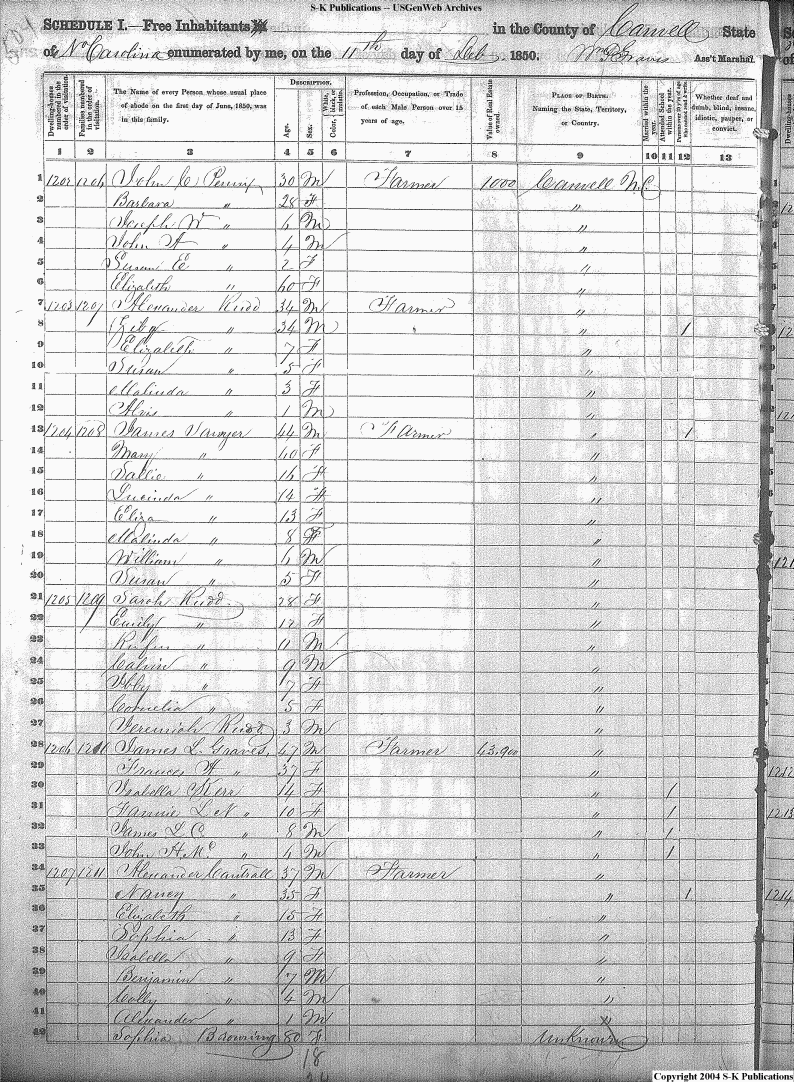 S-K Publications -- USGenWeb Archives
504
SCHEDULE I.—Free Inhabitants in the County of Caswell State
of No Carolina enumerated by me, on the 11th day of Deb, 1850. Wm P. Graves Ass't Marshal.
DESCRIPTION.
Dwelling-houses numbered in the order of visitation. Families numbered in the order of visitation. The Name of every Person whose usual place of abode on the first day of June, 1850, was in this family. Age. Sex. Color, White, black, or mulatto. Profession, Occupation, or Trade of each Male Person over 15 years of age. Value of Real Estate owned. PLACE OF BIRTH. Naming the State, Territory, or Country. Married within the year. Attended School within the year. Whether deaf and dumb, blind, insane, idiotic, pauper, or convict.
1 2 3 4 5 6 7 8 9 10 11 12 13
1 1202 1206 John C 30 M Farmer 1000 Caswell N.C. 1
2 Barbara " 28 F " 2
3 Joseph W " 6 M " 3
4 John A " 4 M " 4
5 Susan E " 2 F " 5
6 Elizabeth " 60 F " 6
7 1203 1207 Alexander Rudd 34 M Farmer " 7
8 " 34 M " 1 8
9 Elizabeth " 7 F " 9
10 Susan " 5 F " 10
11 Malinda " 3 F " 11
12 " 1 M " 12
13 1204 1208 James 44 M Farmer " 1 13
14 Mary " 40 F " 14
15 Sallie " 16 F " 15
16 Lucinda " 14 F " 16
17 Eliza " 13 F " 17
18 Malinda " 8 F " 18
19 William " 6 M " 19
20 Susan " 5 F " 20
21 1205 1209 Sarah Rudd 28 F " 21
22 Emily " 12 F " 22
23 Rufus " 11 M " 23
24 Calvin " 9 M " 24
25 Ibby " 7 F " 25
26 Cornelia " 5 F " 26
27 Jeremiah Rudd 3 M " 27
28 1206 1210 James L. Graves 47 M Farmer 43.900 " 28
29 Frances A " 37 F " 29
30 Isabella Kerr 14 F " 1 30
31 Fannie L N " 10 F " 1 31
32 James L. C. " 8 M " 1 32
33 John H. Mc " 6 M " 1 33
34 1207 1211 Alexander Cantrall 37 M Farmer " 34
35 Nancy " 35 F " 1 35
36 Elizabeth " 15 F " 36
37 Sophia " 13 F " 37
38 Isabella " 9 F " 38
39 Benjamin " 7 M " 39
40 " 4 M " 40
41 Alexander " 1 M " 41
42 Sophia Browning 80 F Unknown
18
24
1212
1213
1214
Copyright 2004 S-K Publications